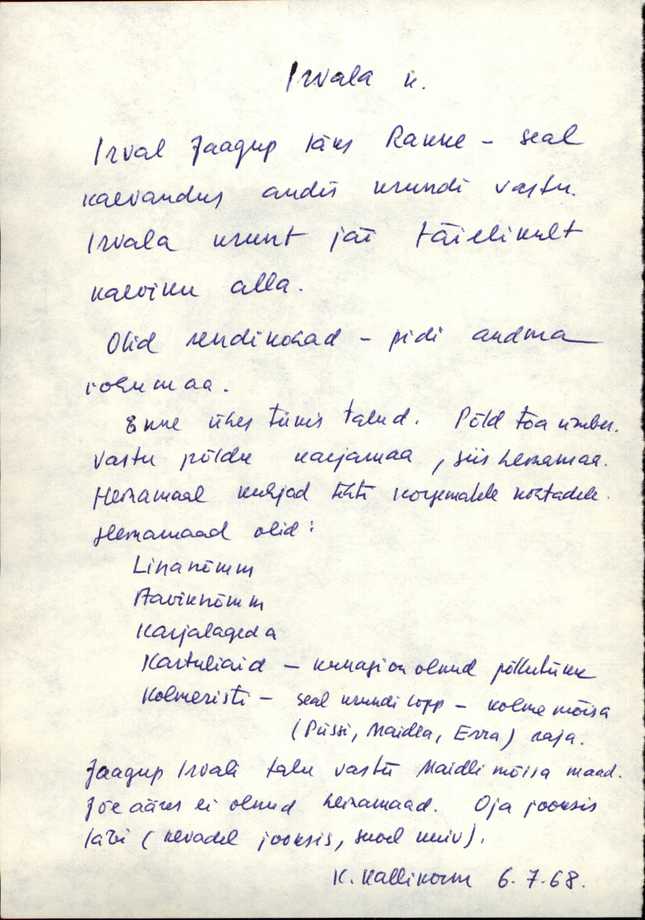 Irvala k.
Irval Jaagup läks Ranne - seal
kaevandus andis krundi vastu.
Irvala krunt jäi täielikult
kaeviku alla.
Olid rendikohad - pidi andma
rohumaa.
Enne ühes tükis talud. Põld toa ümber.
Vastu põldu karjamaa, siis heinamaa.
Heinamaal kuhjad tehti kõrgematele kohtadele.
Heinamaad olid:
Linanõmm
Aaviknõmm
Karjalageda
Kartuliaid - kunagi on olnud põllutükk
Kolmeristi - seal krundi lõpp - kolme mõisa
(Püssi, Maidla, Erra) raja.
Jaagup Irvali talu vastu Maidli mõisa maad.
Jõe ääres ei olnud heinamaad. Oja jooksis
läbi (kevadel jooksis, suvel kuiv).
K. Kallikorm 6.7.68.